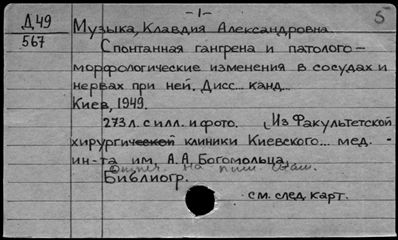 - 1 -
5
Д 49
567
Музыка, Клавдия Александровна.
Спонтанная гангрена и патолого-
морфологические изменения в сосудах и
нервах при ней. Дисс... канд...
Киев, 1949.
273 л. с илл. и фото. (Из Факультетской
хирургической клиники Киевского... мед. -
ин-та им. А.А. Богомольца.
на пиш. маш.
Библиогр.
см. след. карт.